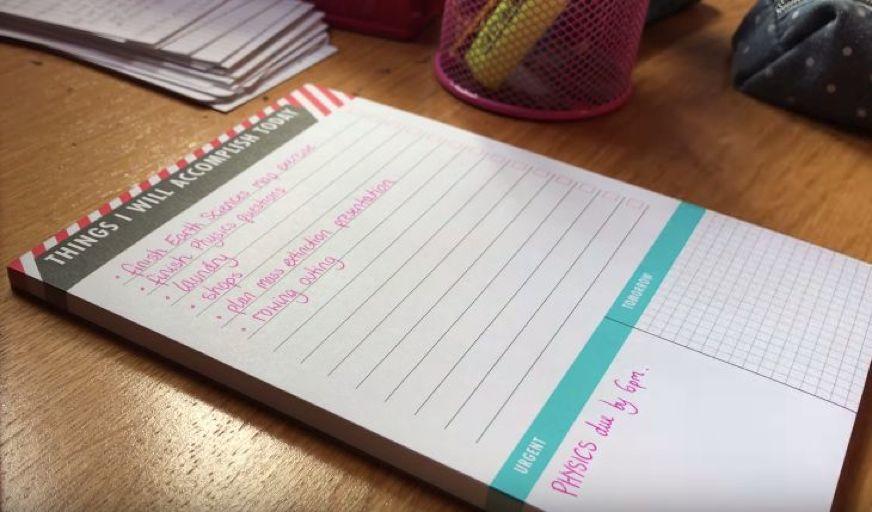 THINGS I WILL ACCOMPLISH TODAY
• finish Earth Sciences map exercise
• finish Physics questions
• laundry
• shops
• plan mass extinction presentation
• rowing outing
URGENT
TOMORROW
PHYSICS due by 6pm.